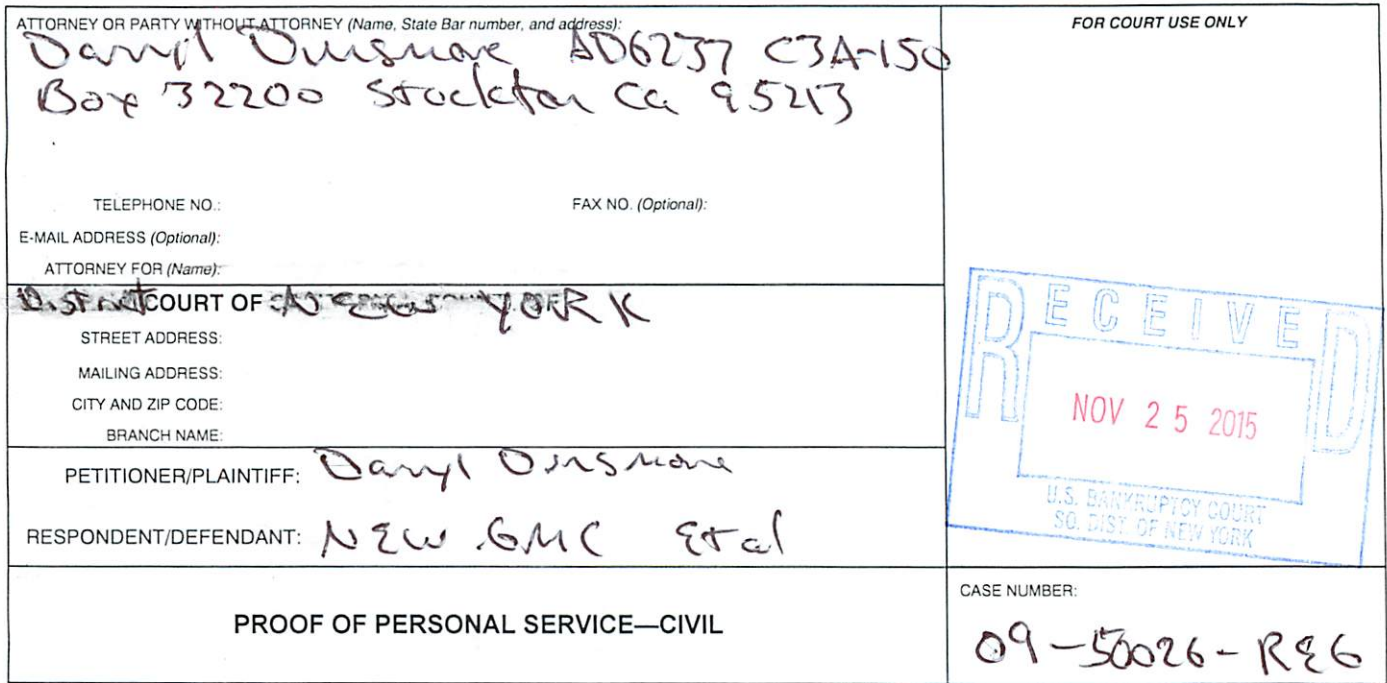 ATTORNEY OR PARTY WITHOUT ATTORNEY (Name, State Bar number, and address):
Darryl Dunsmore AD6237 C3A-150
Box 32200 Stockton Ca 95213
TELEPHONE NO.:
FAX NO. (Optional):
E-MAIL ADDRESS (Optional):
ATTORNEY FOR (Name):
District COURT OF NEW YORK
STREET ADDRESS:
MAILING ADDRESS:
CITY AND ZIP CODE:
BRANCH NAME:
PETITIONER/PLAINTIFF: Darryl Dunsmore
RESPONDENT/DEFENDANT: NEW GMC Et al
PROOF OF PERSONAL SERVICE—CIVIL
FOR COURT USE ONLY
RECEIVED
NOV 25 2015
U.S. BANKRUPTCY COURT
SO. DIST. OF NEW YORK
CASE NUMBER:
09-50026-REG